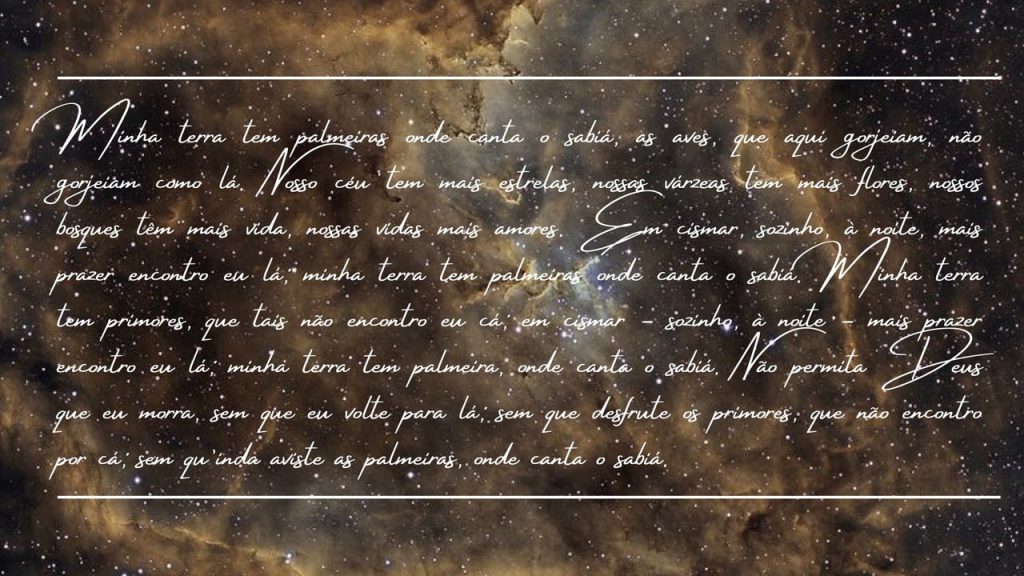 Minha terra tem palmeiras onde canta o sabiá, as aves, que aqui gorjeiam, não
gorjeiam como lá. Nosso céu tem mais estrelas, nossas várzeas tem mais flores, nossos
bosques têm mais vida, nossas vidas mais amores. Em cismar, sozinho, à noite, mais
prazer encontro eu lá; minha terra tem palmeiras onde canta o sabiá. Minha terra
tem primores, que tais não encontro eu cá, em cismar – sozinho, à noite – mais prazer
encontro eu lá, minha terra tem palmeira, onde canta o sabiá. Não permita Deus
que eu morra, sem que eu volte para lá; sem que desfrute os primores, que não encontro
por cá; sem qu'inda aviste as palmeiras, onde canta o sabiá.